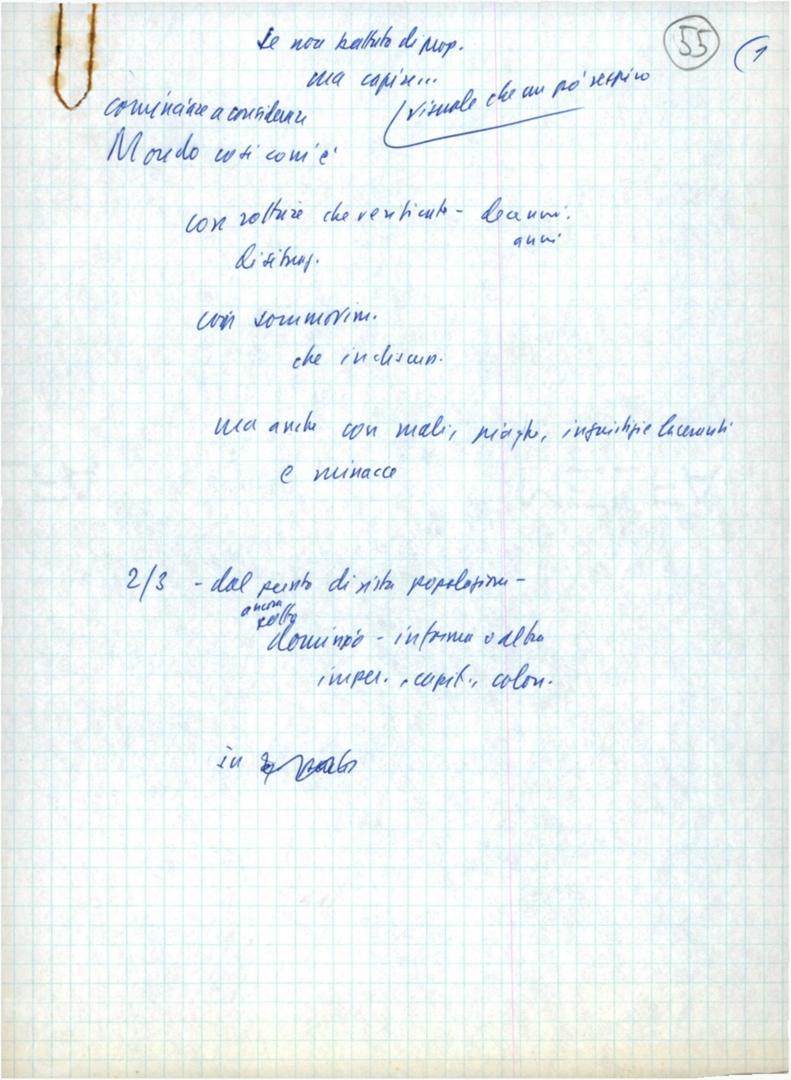 55
1
se non battuta di prop.
ma capire...
visuale che un pò respiro
cominciare a considerare
Mondo così com'è
con rotture che verificate - decenni.
anni
di sitraz.
con sommovim.
che indiscun.
ma anche con mali, piaghe, ingiustizie laceranti
e minacce
2/3 - dal punto di vista popolazione -
ancora
sotto
dominio - in forma o altra
imper., capit., colon.
in